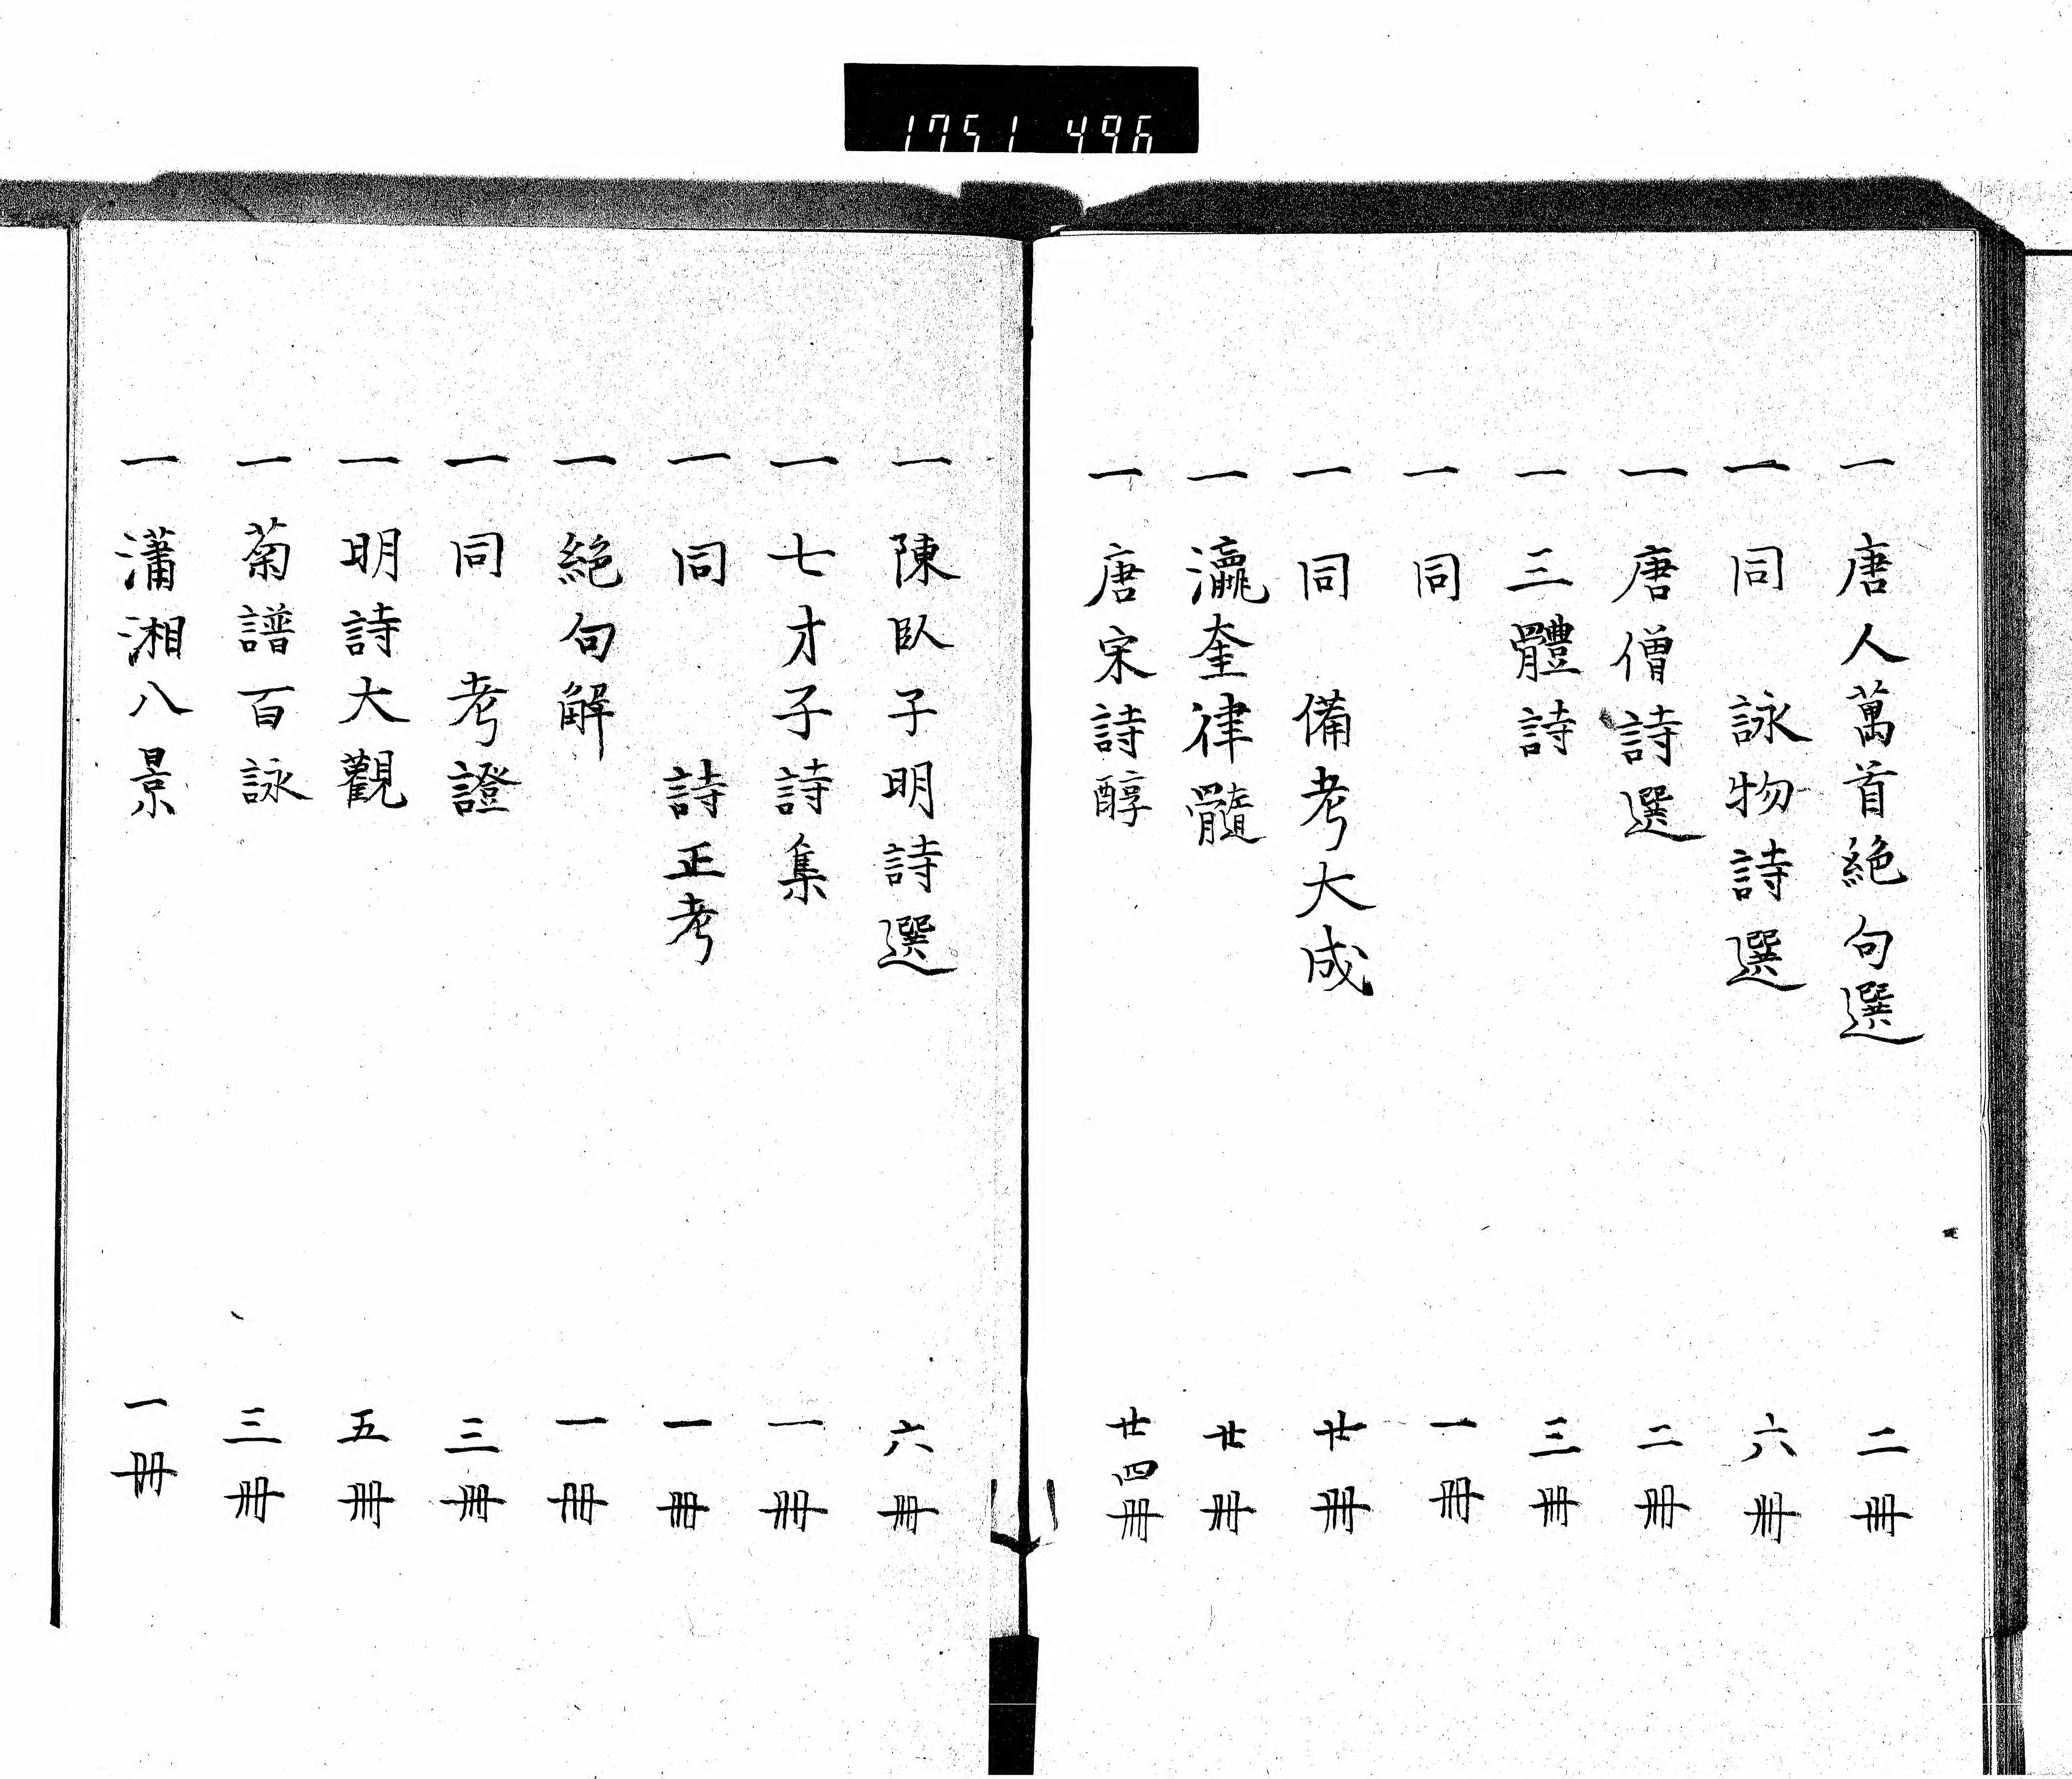 1751 496
一 唐人萬首絶句選 二冊
一 同 詠物詩選 六冊
一 唐僧詩選 二冊
一 三體詩 三冊
一 同 一冊
一 同 備考大成 廿冊
一 瀛奎律髓 廿冊
一 唐宋詩醇 廿四冊
一 陳臥子明詩選 六冊
一 七才子詩集 一冊
一 同 詩正考 一冊
一 絶句解 一冊
一 同 考證 三冊
一 明詩大觀 五冊
一 菊譜百詠 三冊
一 瀟湘八景 一冊